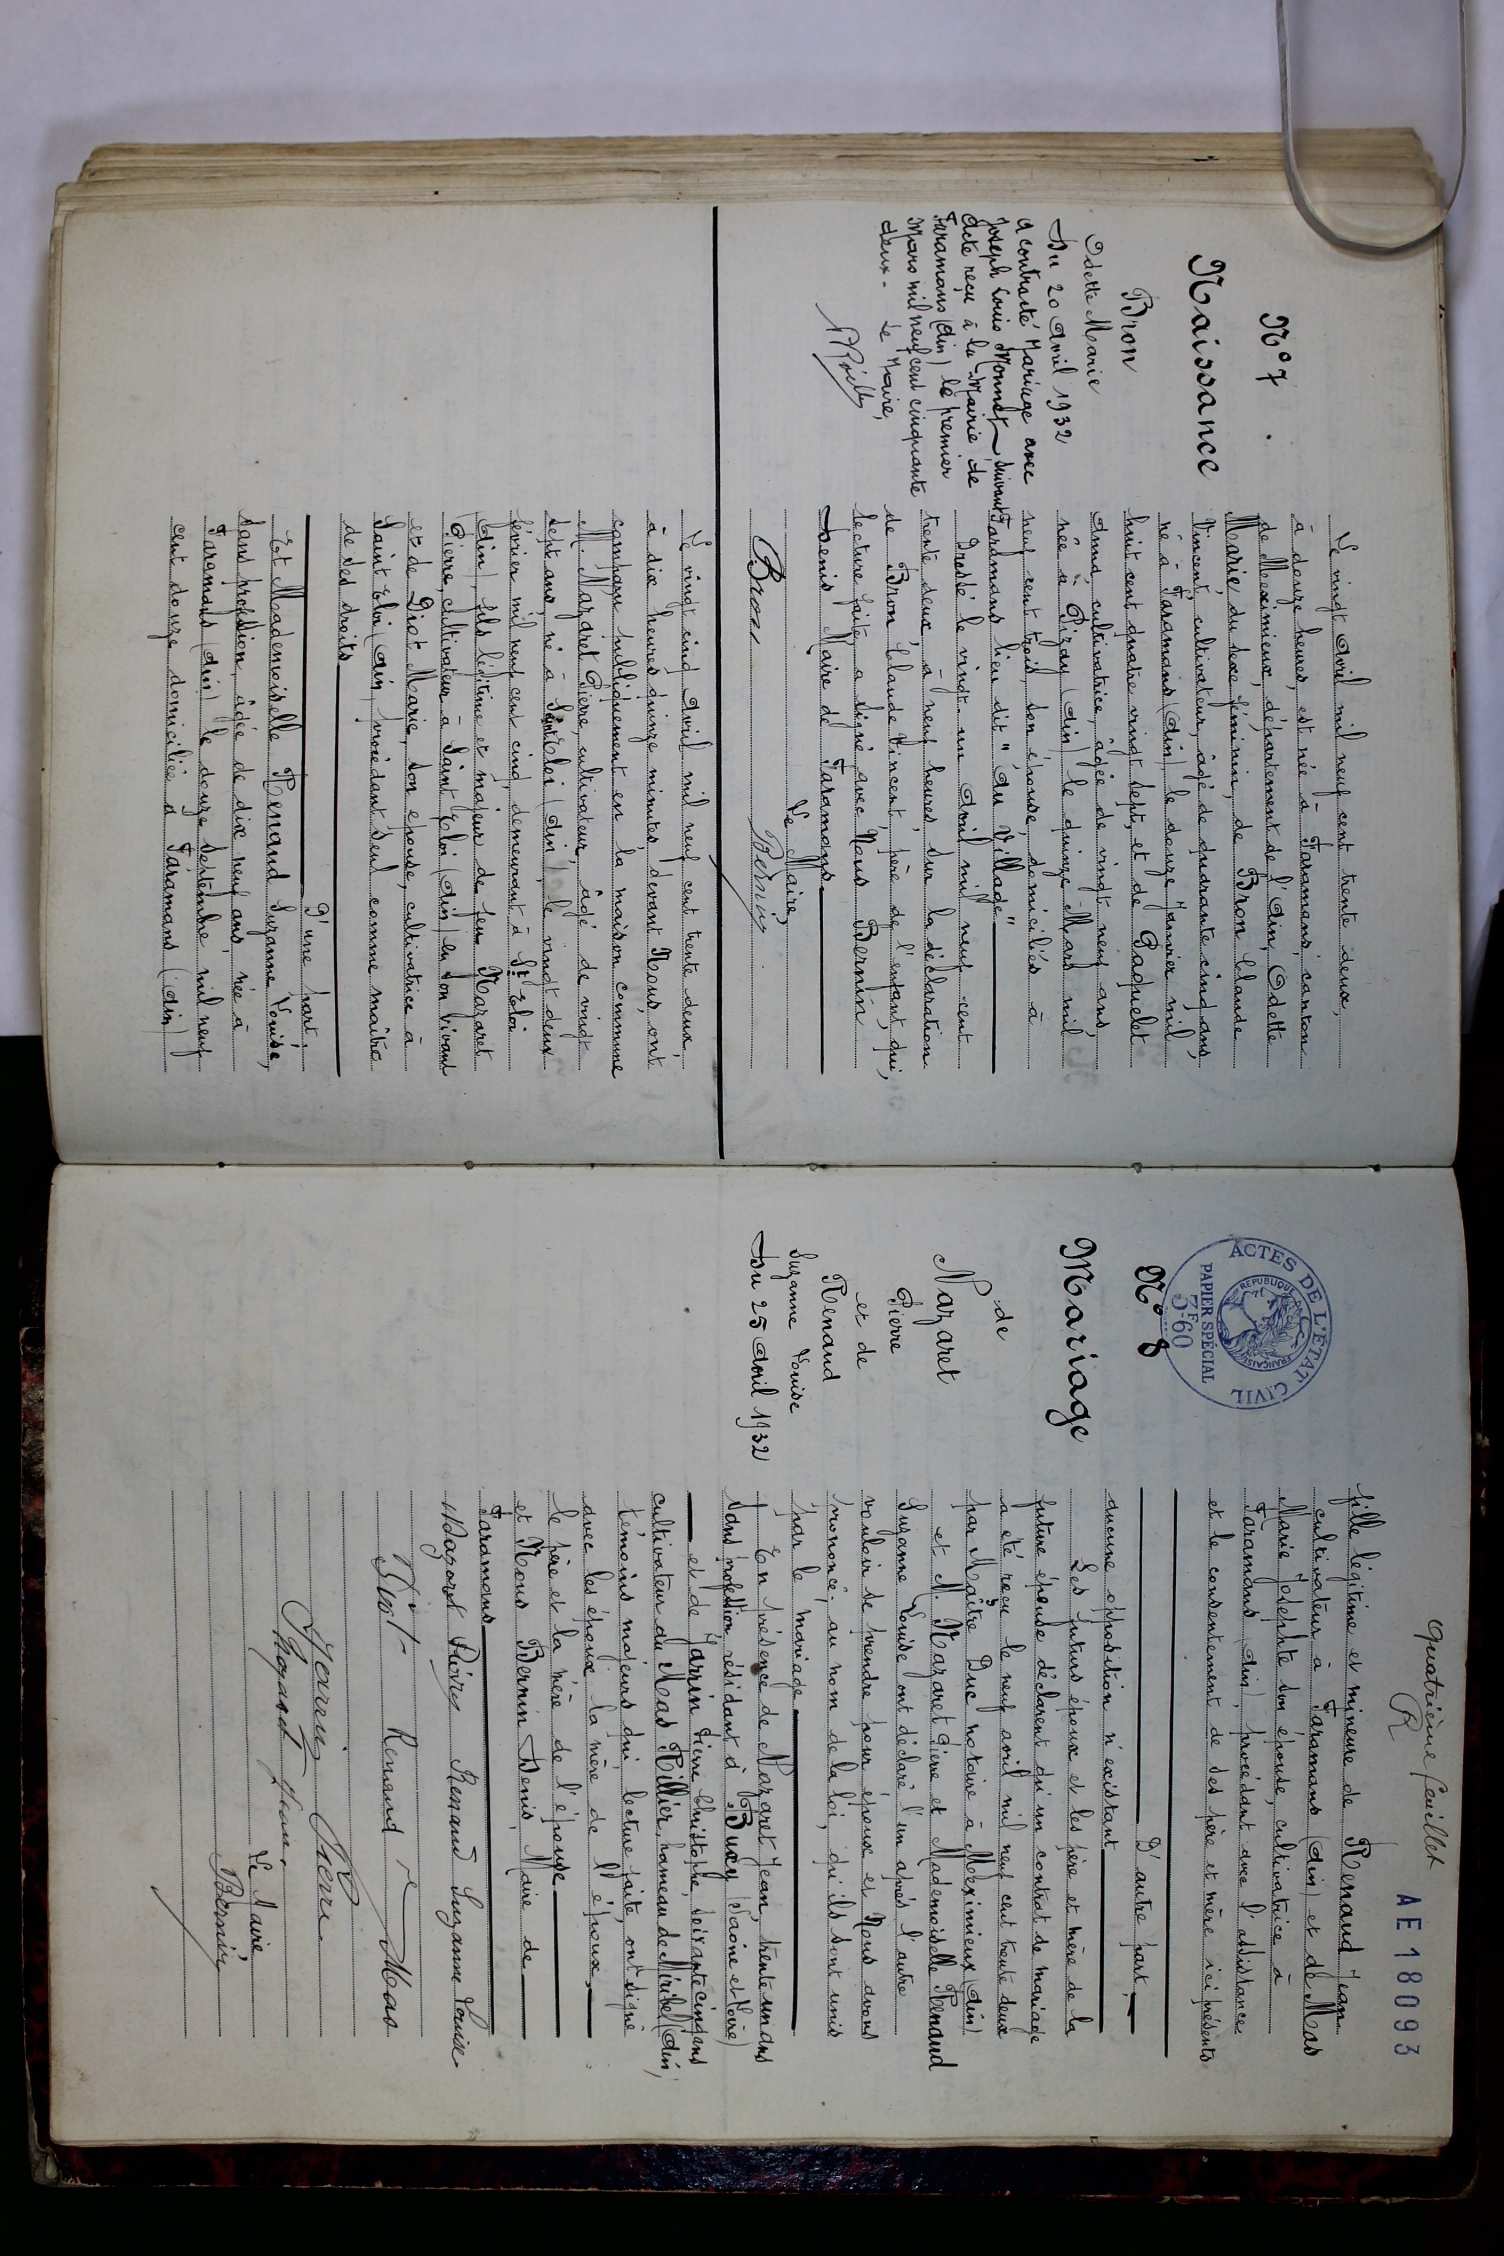 N° 7.
Naissance
Bron
Odette Marie
Du 20 Avril 1932
a contracté Mariage avec
Joseph Louis Monnet suivant
Acte reçu à la Mairie de
Faramans (Ain) le premier
Mars mil neuf cent cinquante
deux - Le Maire,
Le vingt Avril mil neuf cent trente deux,
à douze heures, est née à Faramans, canton
de Meximieux, département de l'Ain, Odette
Marie, du sexe féminin, de Bron Claude
Vincent, cultivateur, âgé de quarante cinq ans,
né à Faramans (Ain) le douze Janvier mil
huit cent quatre vingt sept, et de Paquelet
Anna, cultivatrice, âgée de vingt neuf ans,
née à Pizay (Ain) le quinze Mars mil
neuf cent trois, son épouse, domiciliés à
Faramans lieu dit "du Village"
Dressé le vingt un Avril mil neuf cent
trente deux, à neuf heures, sur la déclaration
de Bron Claude Vincent, père de l'enfant, qui,
lecture faite, a signé avec Nous Bernin
Denis Maire de Faramans
Le Maire,
Bron Bernin
Le vingt cinq Avril mil neuf cent trente deux,
à dix heures quinze minutes, devant Nous, ont
comparu publiquement en la maison commune
M. Nazaret Pierre, cultivateur, âgé de vingt
sept ans, né à Saint Eloi (Ain), le vingt deux
février mil neuf cent cinq, demeurant à St Eloi
(Ain), fils légitime et majeur de feu Nazaret
Pierre, cultivateur à Saint Eloi (Ain) en son vivant
et de Diot Marie, son épouse, cultivatrice à
Saint Eloi (Ain), procédant seul comme maître
de ses droits
D'une part;
Et Mademoiselle Renaud Suzanne Louise,
sans profession, âgée de dix neuf ans, née à
Faramans (Ain) le douze Septembre mil neuf
cent douze domiciliée à Faramans (Ain)
Quatrième feuillet
R
AE 18093
ACTES DE L'ÉTAT CIVIL
REPUBLIQUE FRANÇAISE
PAPIER SPÉCIAL
3F60
N° 8
Mariage
de
Nazaret
Pierre
et de
Renaud
Suzanne Louise
Du 25 Avril 1932
fille légitime et mineure de Renaud Jean
cultivateur à Faramans (Ain) et de Mas
Marie Josephte son épouse, cultivatrice à
Faramans (Ain), procédant avec l'assistance
et le consentement de ses père et mère ici présents
D'autre part,
aucune opposition n'existant
Les futurs époux et les père et mère de la
future épouse déclarent qu'un contrat de mariage
a été reçu le neuf avril mil neuf cent trente deux
par Maître Duc notaire à Meximieux (Ain)
et M. Nazaret Pierre et Mademoiselle Renaud
Suzanne Louise ont déclaré l'un après l'autre
vouloir se prendre pour époux et Nous avons
prononcé, au nom de la loi, qu'ils sont unis
par le mariage
En présence de Nazaret Jean, trente un ans
sans profession, résidant à Buxy (Saône et Loire)
et de Jarrin Pierre Christophe, soixante cinq ans
cultivateur au Mas Rillier, hameau de Miribel (Ain),
témoins majeurs qui, lecture faite, ont signé
avec les époux, la mère de l'époux,
le père et la mère de l'épouse
et Nous Bernin Denis, Maire de
Faramans
Nazaret Pierre Renaud Suzanne Louise
Diot Renaud Mas
Jarrin Pierre
Nazaret Jean
Le Maire
Bernin